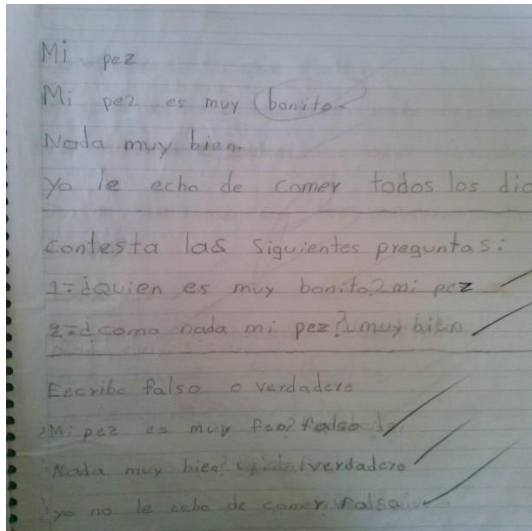 Mi pez
Mi pez es muy bonito.
Nada muy bien.
Yo le echo de comer todos los dia
contesta las siguientes preguntas:
1=¿Quien es muy bonito? mi pez
2=¿como nada mi pez? muy bien
Escribe falso o verdadero
¿Mi pez es muy feo? falso
¿Nada muy bien? verdadero
¿yo no le echo de comer? falso